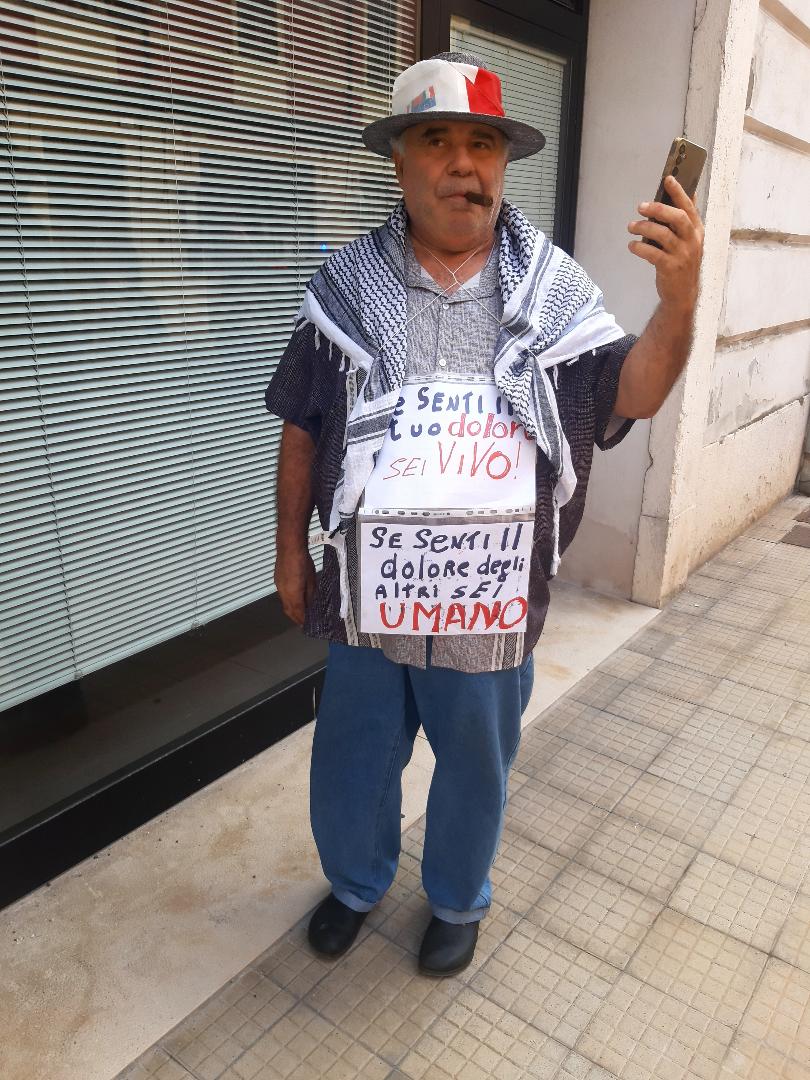 SENTI Il
tuo dolore
SEI VIVO!
SE SENTI Il
dolore degli
AlTRI SEI
UMANO